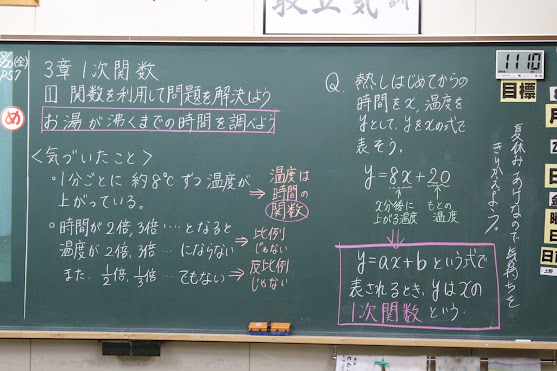 3章 1次関数
1 関数を利用して問題を解決しよう
お湯が沸くまでの時間を調べよう
め
P57
(金)
<気づいたこと>
・1分ごとに 約8℃ ずつ 温度が
上がっている。
→ 温度は
時間の
関数
・時間が2倍,3倍…となると
温度が2倍,3倍…にならない
→ 比例
じゃない
また、1/2倍,1/3倍…でもない
→ 反比例
じゃない
Q. 熱しはじめてからの
時間をx,温度を
yとして,yをxの式で
表そう。
y=8x+20
上がる温度
もとの
温度
y=ax+bという式で
表されるとき,yはxの
1次関数という.
夏休みあけなので気持ちを
きりかえよう。
1110
目標
月
日
曜
日